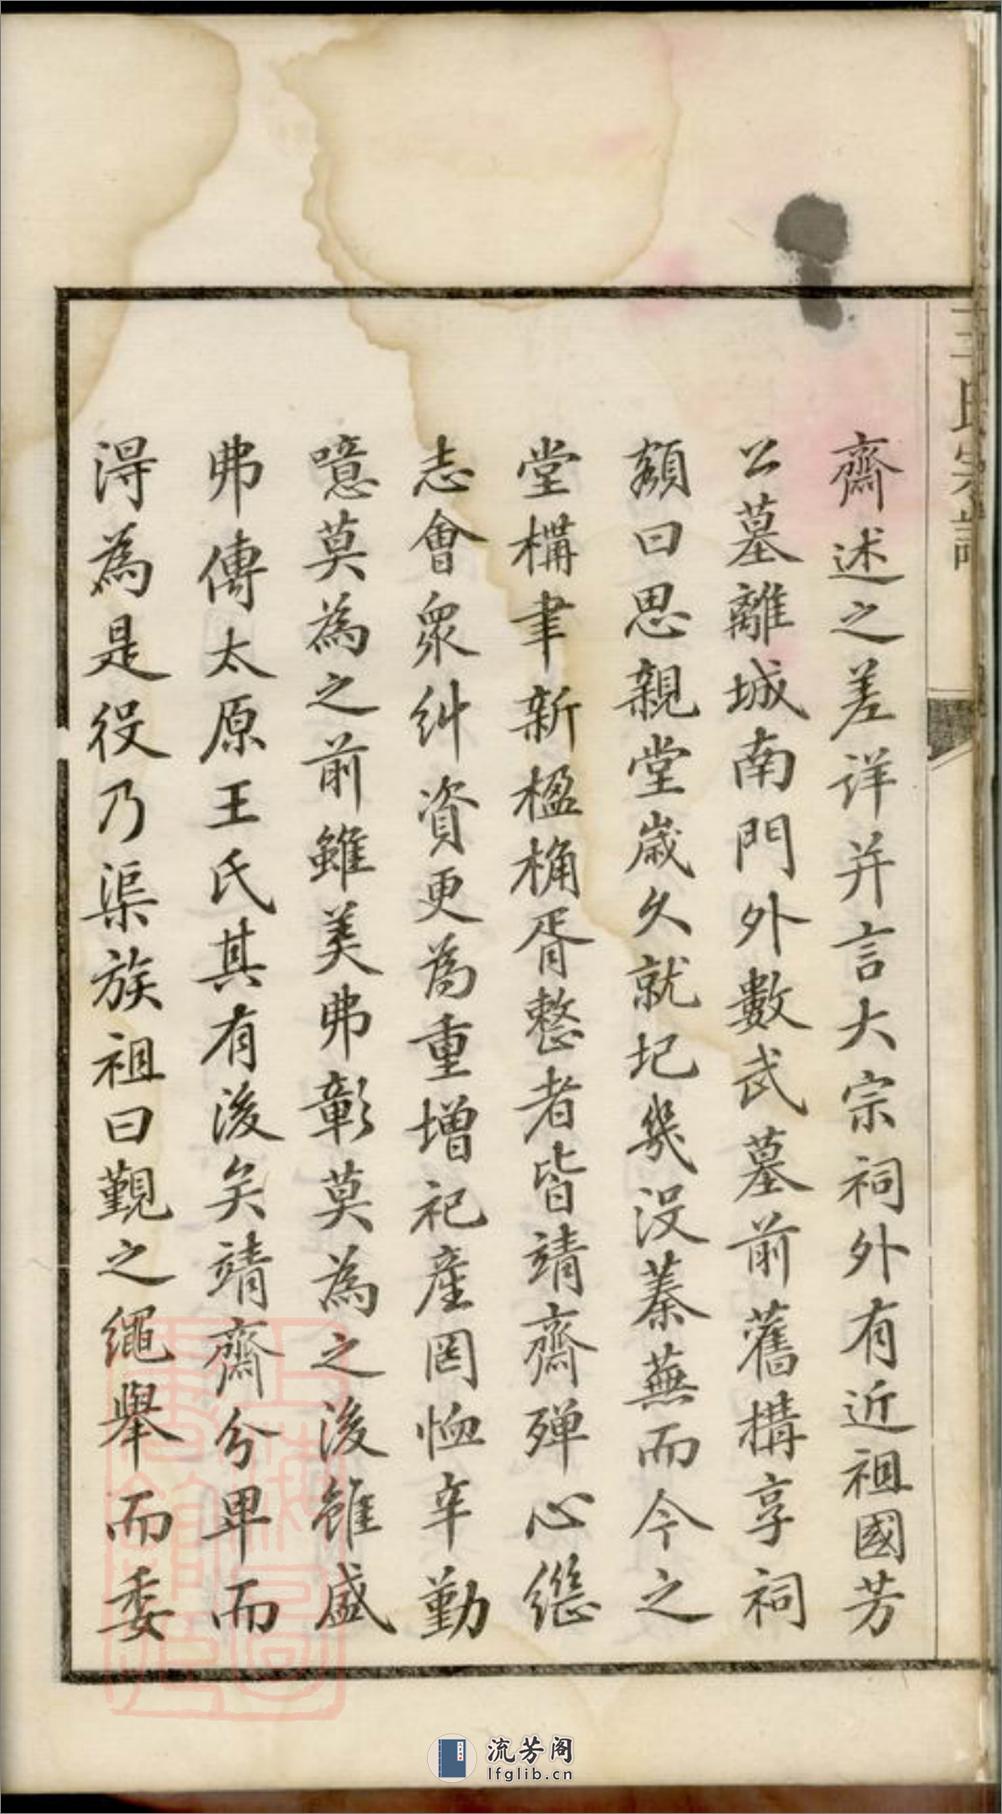 齋述之差詳并言大宗祠外有近祖國芳
公墓離城南門外數武墓前舊搆享祠
額曰思親堂歲久就圮幾没蓁蕪而今之
堂構聿新楹桷胥整者皆靖齋殫心繼
志會衆糾資更為重增祀產罔恤辛勤
噫莫為之前雖美弗彰莫為之後雖盛
弗傳太原王氏其有後矣靖齋分卑而
淂為是役乃渠族祖曰觐之繩舉而委
王氏宗譜
流芳阁
lfglib.cn